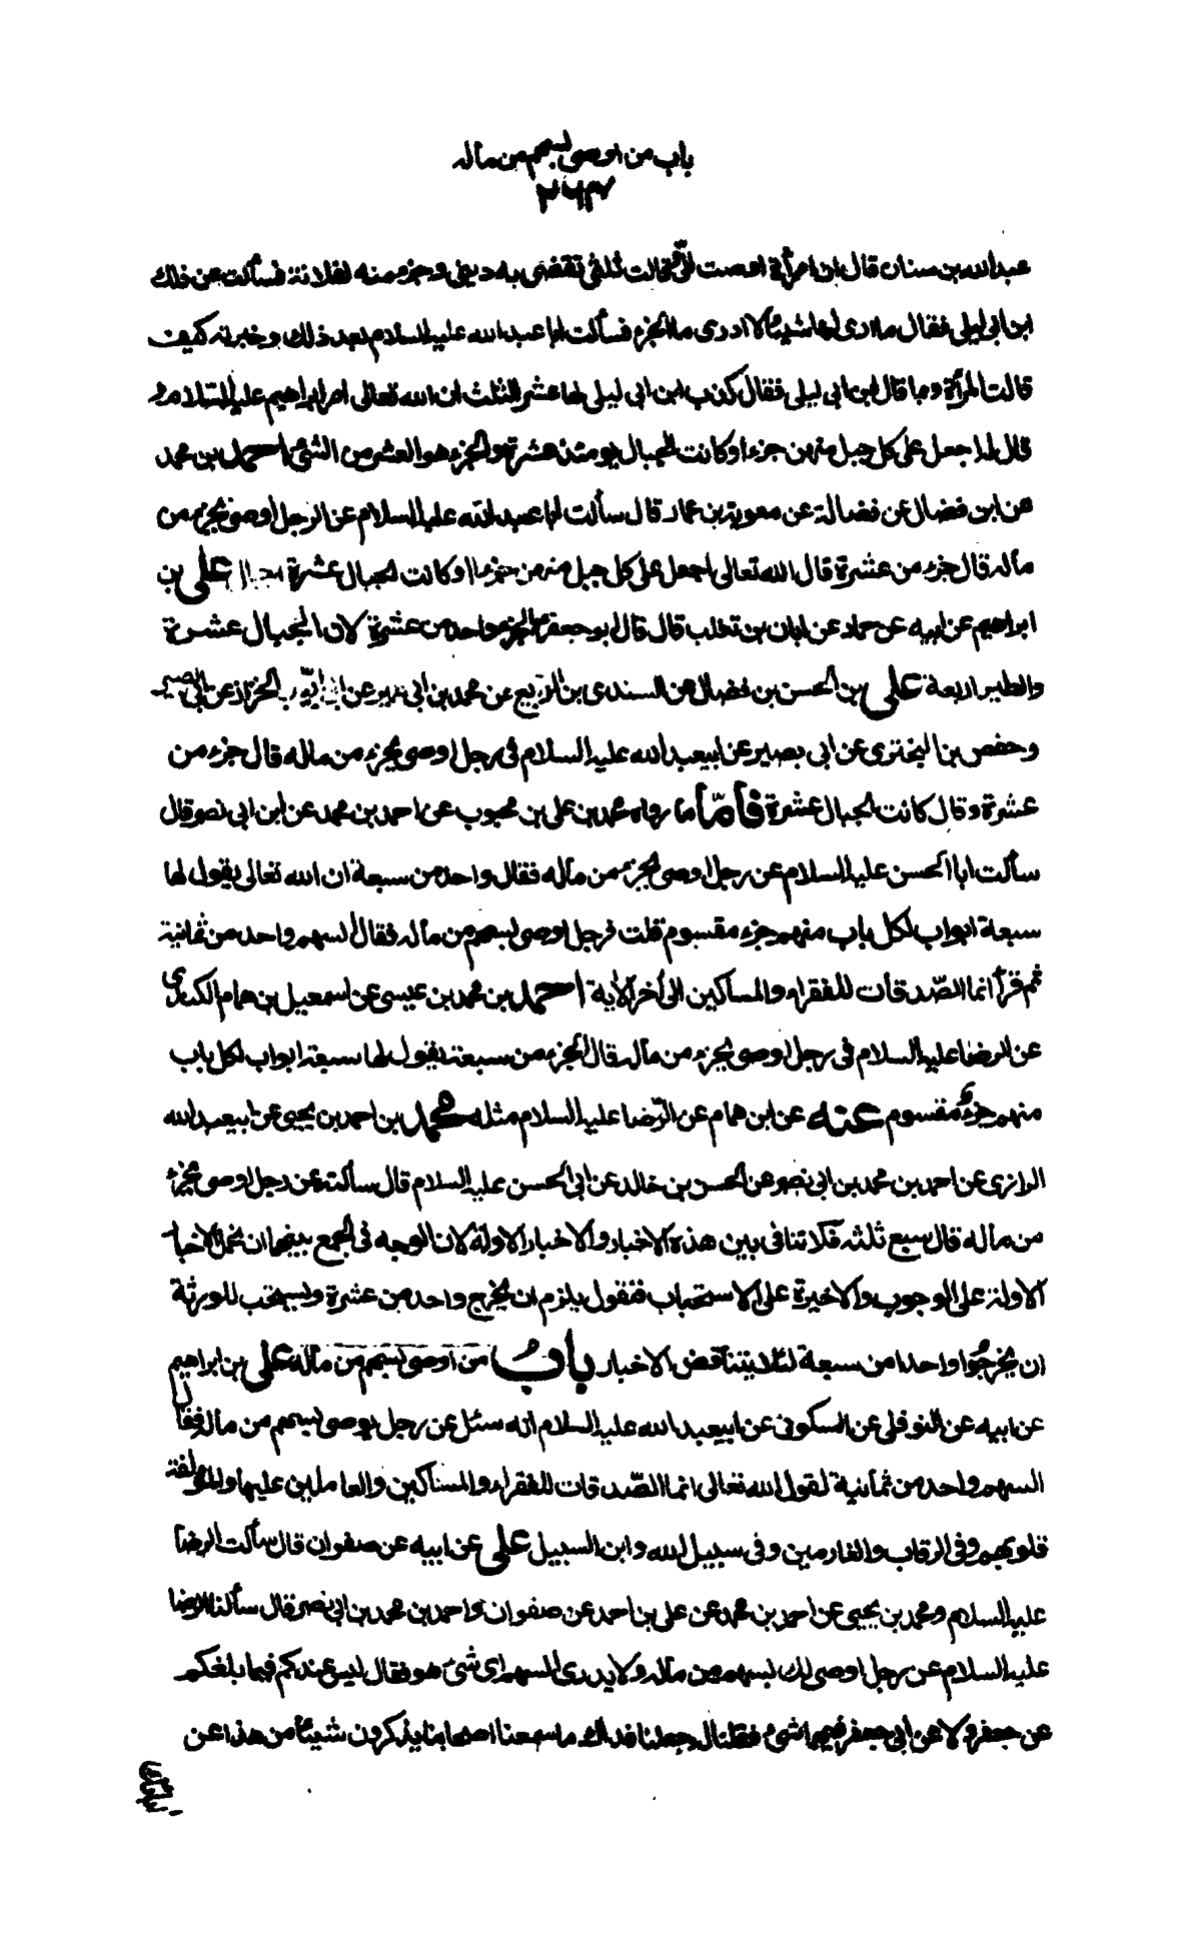 باب من اوصى بسهم من ماله
٢٦٣
عبدالله بن سنان قال ان امرأة اوصت الىّ فقالت ثلثي تقضي به ديني وجزء منه لفلانة فسألت عن ذلك
ابن ابي ليلى فقال ما ارى لها شيئا لا ادرى ما الجزء فسألت ابا عبد الله عليه السلام بعد ذلك وخبرته كيف
قالت المرأة وما قال ابن ابي ليلى فقال كذب ابن ابي ليلى لها عشر الثلث ان الله تعالى امر ابراهيم عليه السلام و
قال له اجعل على كل جبل منهن جزءا وكانت الجبال يومئذ عشرة والجزء هو العشر من الشئ احمد بن محمد
عن ابن فضال عن ثعلبة عن معوية بن عمار قال سألت ابا عبد الله عليه السلام عن الرجل اوصى بجزء من
ماله قال جزء من عشرة قال الله تعالى اجعل على كل جبل منهن جزءا وكانت الجبال عشرة علي بن
ابراهيم عن ابيه عن حماد عن ابان بن تغلب قال قال ابو جعفر الجزء واحد من عشرة لان الجبال عشرة
والطير اربعة علي بن الحسن بن فضال عن السندى بن الربيع عن محمد بن ابي عمير عن ابي ايوب الخزاز عن ابي بصير
وحفص بن البختري عن ابي بصير عن ابيعبد الله عليه السلام في رجل اوصى بجزء من ماله قال جزء من
عشرة وقال كانت الجبال عشرة فأمّا ما رواه محمد بن علي بن محبوب عن احمد بن محمد عن ابن ابي نصر قال
سألت ابا الحسن عليه السلام عن رجل اوصى بجزء من ماله فقال واحد من سبعة ان الله تعالى يقول لها
سبعة ابواب لكل باب منهم جزء مقسوم قلت فرجل اوصى بسهم من ماله فقال السهم واحد من ثمانية
ثم قرأ انما الصّدقات للفقراء والمساكين الى أخر الآية احمد بن محمد بن عيسى عن اسمعيل بن همام الكندي
عن الرضا عليه السلام في رجل اوصى بجزء من ماله قال الجزء من سبعة يقول لها سبعة ابواب لكل باب
منهم جزء مقسوم عنه عن ابن همام عن الرّضا عليه السلام مثله محمد بن احمد بن يحيى عن ابيعبد الله
الرازى عن احمد بن محمد بن ابي نصر عن الحسن بن خالد عن ابي الحسن عليه السلام قال سألته عن رجل اوصى بجزء
من ماله قال سبع ثلثه فلا تنافى بين هذه الاخبار والاخبار الاولة لان الوجه فى الجمع بينهما ان نحمل الاخبار
الاولة على الوجوب والاخيرة على الاستحباب فنقول يلزم ان يخرج واحد من عشرة ويستحب للورثة
ان يخرجوا واحدا من سبعة لئلا يتناقض الاخبار باب من اوصى بسهم من ماله علي بن ابراهيم
عن ابيه عن النوفلي عن السكوني عن ابيعبد الله عليه السلام انه سئل عن رجل يوصى بسهم من ماله فقال
السهم واحد من ثمانية لقول الله تعالى انما الصّدقات للفقراء والمساكين والعاملين عليها والمؤلفة
قلوبهم وفي الرقاب والغارمين وفى سبيل الله وابن السبيل علي عن ابيه عن صفوان قال سألت الرضا
عليه السلام ومحمد بن يحيى عن احمد بن محمد عن علي بن احمد عن صفوان واحمد بن محمد بن ابي نصر قال سألنا الرضا
عليه السلام عن رجل اوصى لك بسهم من ماله ولا يدرى السهم اى شئ هو فقال ليس عندكم فيما بلغكم
عن جعفر ولا عن ابي جعفر فيها شئ فقلنا له جعلنا فداك ما سمعنا اصحابنا يذكرون شيئا من هذا عن